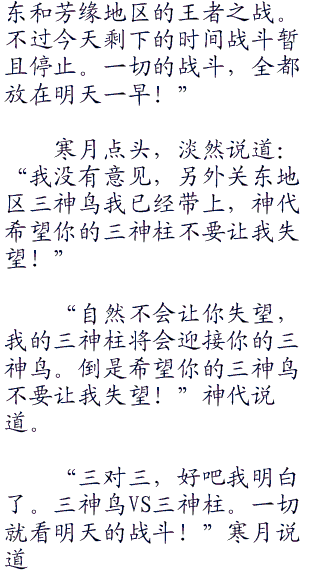 东和芳缘地区的王者之战。
不过今天剩下的时间战斗暂
且停止。一切的战斗，全都
放在明天一早！”
寒月点头，淡然说道：
“我没有意见，另外关东地
区三神鸟我已经带上，神代
希望你的三神柱不要让我失
望！”
“自然不会让你失望，
我的三神柱将会迎接你的三
神鸟。倒是希望你的三神鸟
不要让我失望！”神代说
道。
“三对三，好吧我明白
了。三神鸟VS三神柱。一切
就看明天的战斗！”寒月说
道